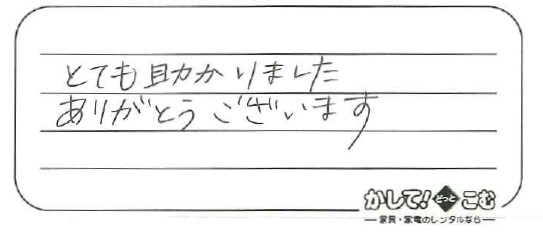 とても助かりました
ありがとうございます
かして!どっとこむ
家具・家電のレンタルなら